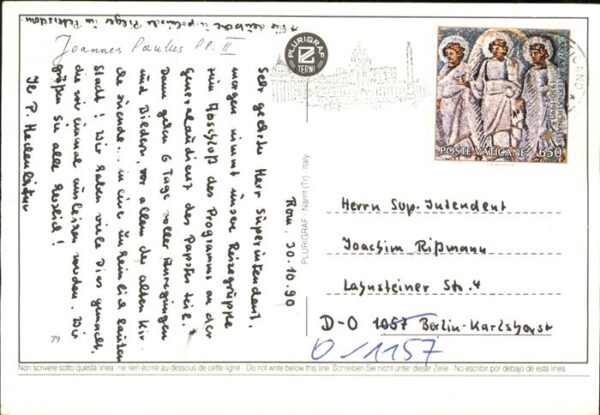 * für deutsche u. polnische Pilger in
Joannes Paulus PP. II
Rom, 30.10.90
Sehr geehrter Herr Superintendent,
morgen nimmt unsere Reisegruppe
zum Abschluß des Programms an der
Generalaudienz des Papstes teil.*
Dann gehen 6 Tage voller Anregungen
und Bildern, vor allem der alten Kir-
che zu Ende... in eine
Stadt! Wir haben viele Dias gemacht,
die wir einmal werden. Wir
grüßen Sie alle herzlich!
Ihr P.
PLURIGRAF
TERNI
PLURIGRAF - Narni (Tr) - Italy
POSTE VATICANE 650
Herrn Sup. Intendent
Joachim Rißmann
Lahnsteiner Str. 4
D-O 1057 Berlin-Karlshorst
O/1157
79
Non scrivere sotto questa linea - ne rien écrire au-dessous de cette ligne - Do not write below this line - Schreiben Sie nicht unter dieser Zeile - No escribir por debajo de esta linea